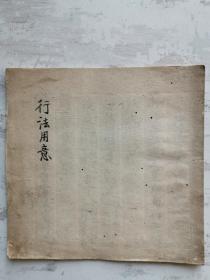 行法用意